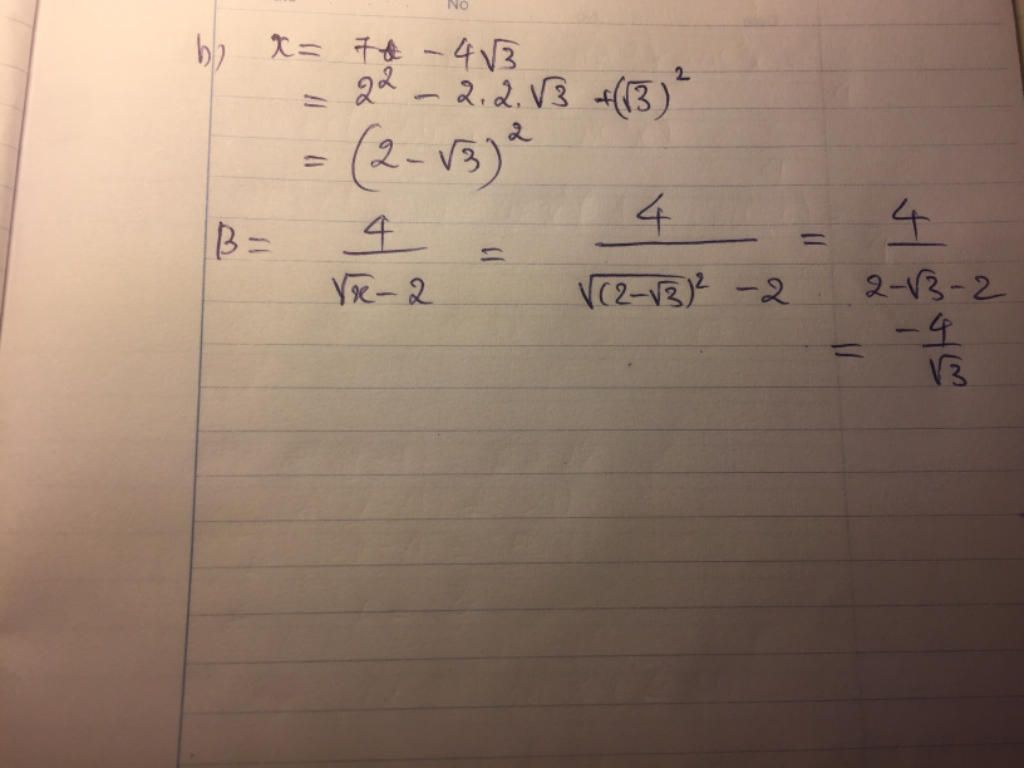 No
b) x = 7 - 4√3
= 2² - 2.2.√3 + (√3)²
= (2 - √3)²
B = 4/(√x - 2) = 4/(√(2-√3)² - 2) = 4/(2-√3-2)
= -4/√3